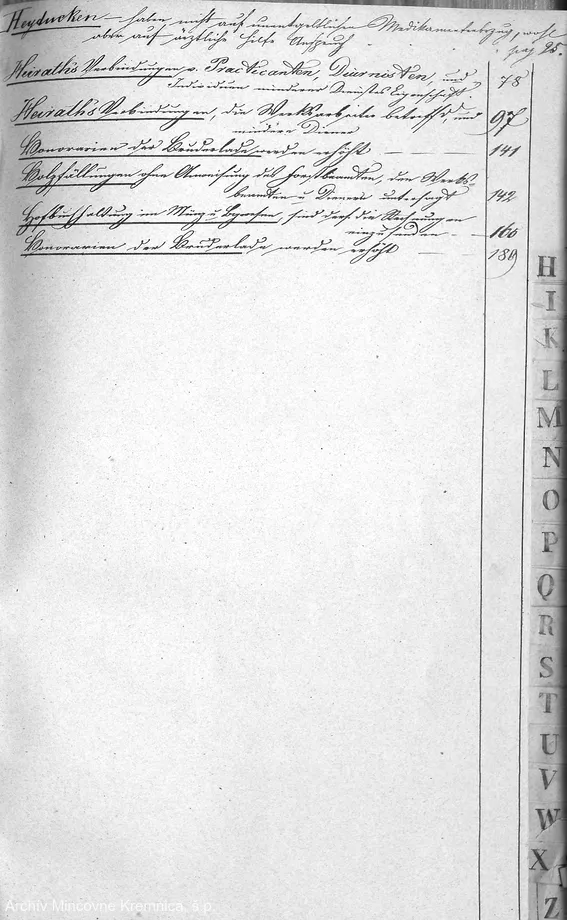 Heyduken – haben nicht auf unentgeltlichen Medikamentenbezug, wohl
aber auf ärztliche Hilfe Anspruch pag 25.
Heiraths Verbindungen v. Practicanten, Diurnisten, und 78
Individuen minderer Dienstes Eigenschaft
Heiraths Verbindungen, die Werksarbeiter betreffd und 97
mindere Diener
Honorarien der Bruderlade werden erhöht – 141
Holzfällungen ohne Anweisung des Forstbeamten, den Werks-
beamten u Dienern untersagt 142
Hofbuchhaltung im Münz u Bergwesen, sind derf die Rechnungen
einzusenden – 160
Honorarien der Bruderlade werden erhöht – 189
H
I
K
L
M
N
O
P
Q
R
S
T
U
V
W
X
Z
Archív Mincovne Kremnica, š.p.